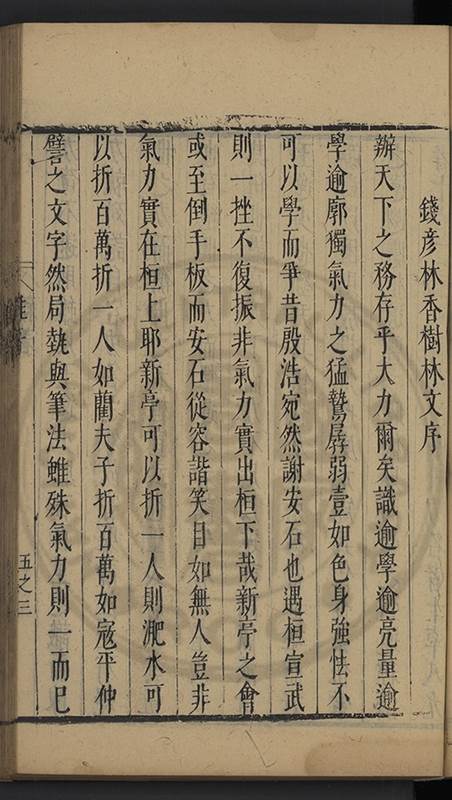 錢彥林香樹林文序
辦天下之務存乎大力爾矣識逾學逾亮量逾
學逾廓獨氣力之猛鷙孱弱壹如色身強怯不
可以學而爭昔殷浩宛然謝安石也遇桓宣武
則一挫不復振非氣力實出桓下哉新亭之會
或至倒手板而安石從容諧笑目如無人豈非
氣力實在桓上耶新亭可以折一人則淝水可
以折百萬折一人如藺夫子折百萬如寇平仲
譬之文字然局埶與筆法雖殊氣力則一而已
五之三